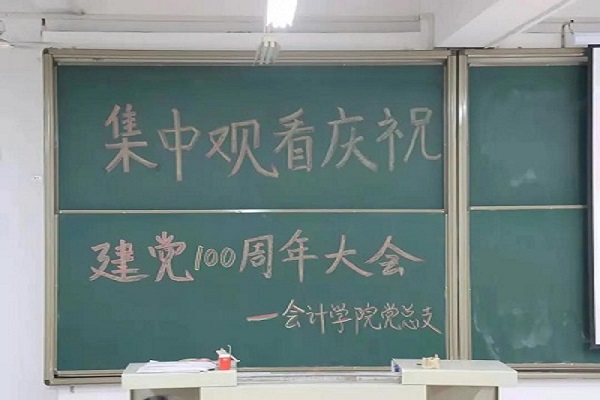 集中观看庆祝
建党100周年大会
—会计学院党总支